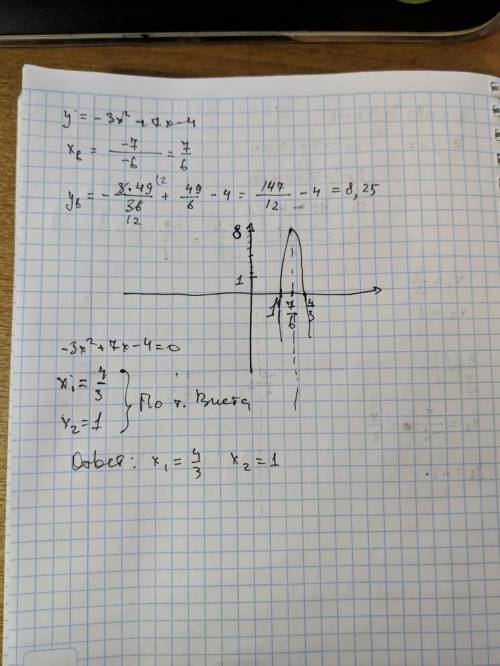 y = -3x² + 7x - 4
xв = -7/-6 = 7/6
yв = - 3·49/36 12 12 + 49/6 - 4 = 147/12 - 4 = 8,25
8
1
1 7/6 4/3
-3x² + 7x - 4 = 0
x₁ = 4/3
x₂ = 1
По т. Виета
Ответ: x₁ = 4/3 x₂ = 1